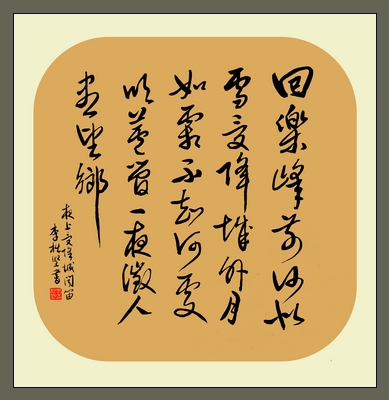 回樂峰前沙似
雪受降城外月
如霜不知何處
吹蘆管一夜徵人
盡望鄉
夜上受降城聞笛
李堅書